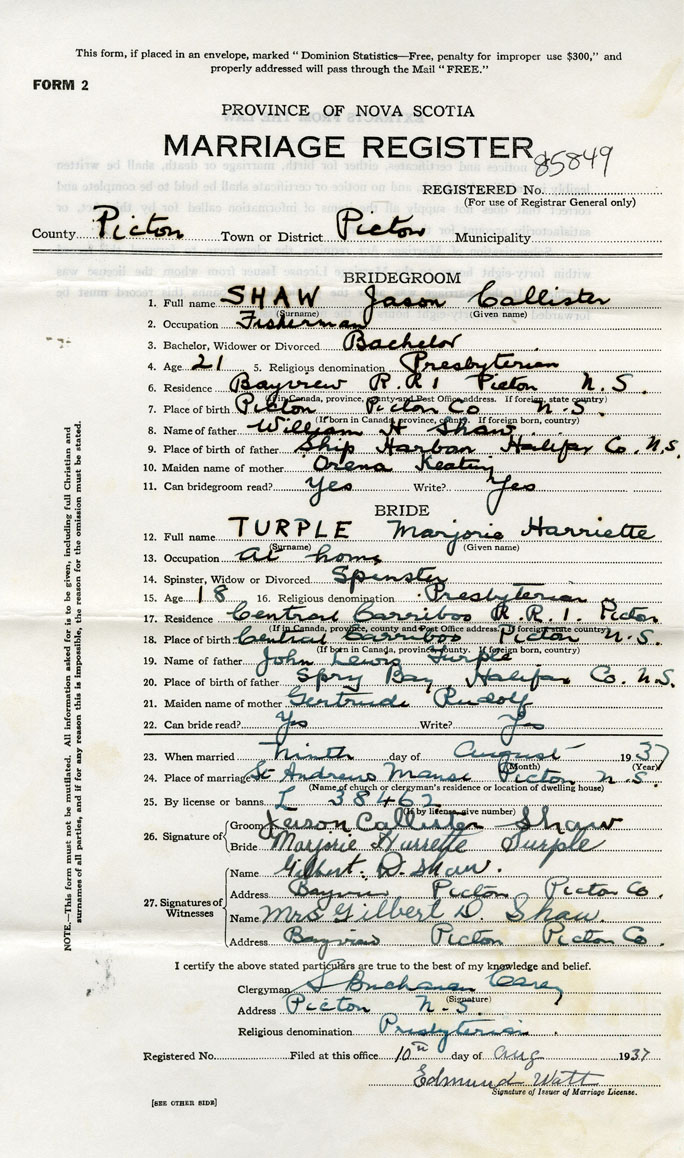 This form, if placed in an envelope, marked "Dominion Statistics—Free, penalty for improper use $300," and
properly addressed will pass through the Mail "FREE."
FORM 2
PROVINCE OF NOVA SCOTIA
MARRIAGE REGISTER
85849
REGISTERED No.
(For use of Registrar General only)
County Pictou Town or District Pictou Municipality
BRIDEGROOM
1. Full name SHAW Jason Callister
(Surname) (Given name)
2. Occupation Fisherman
3. Bachelor, Widower or Divorced Bachelor
4. Age 21 5. Religious denomination Presbyterian
6. Residence Bayview R.R.1 Pictou N.S.
(If in Canada, province, county and Post Office address. If foreign, state country)
7. Place of birth Pictou Pictou Co N.S.
(If born in Canada, province, county. If foreign born, country)
8. Name of father William H Shaw
9. Place of birth of father Ship Harbor Halifax Co. N.S.
10. Maiden name of mother Orena Keating
11. Can bridegroom read? Yes Write? Yes
BRIDE
12. Full name TURPLE Marjorie Harriette
(Surname) (Given name)
13. Occupation at home
14. Spinster, Widow or Divorced Spinster
15. Age 18 16. Religious denomination Presbyterian
17. Residence Central Carriboo R.R.1. Pictou
(If in Canada, province, county and Post Office address. If foreign state country)
18. Place of birth Central Carriboo Pictou N.S.
(If born in Canada, province, county. If foreign born, country)
19. Name of father John Lewis Turple
20. Place of birth of father Spry Bay, Halifax Co. N.S.
21. Maiden name of mother Gertrude Rudolf
22. Can bride read? Yes Write? Yes
23. When married Ninth day of August 1937
(Month) (Year)
24. Place of marriage St Andrews Manse Pictou N.S.
(Name of church or clergyman's residence or location of dwelling house)
25. By license or banns L 38462
(If by license give number)
26. Signature of Groom Jason Callister Shaw
Bride Marjorie Harriette Turple
27. Signatures of Witnesses
Name Gilbert. D. Shaw.
Address Bayview Pictou Pictou Co.
Name Mrs Gilbert D. Shaw.
Address Bayview Pictou Pictou Co.
I certify the above stated particulars are true to the best of my knowledge and belief.
Clergyman S Buchanan Carey
(Signature)
Address Pictou N.S.
Religious denomination Presbyterian.
Registered No. Filed at this office 10th day of Aug 1937
Edmund Watt
Signature of Issuer of Marriage License.
[SEE OTHER SIDE]
NOTE.—This form must not be mutilated. All information asked for is to be given, including full Christian and
surnames of all parties, and if for any reason this is impossible, the reason for the omission must be stated.